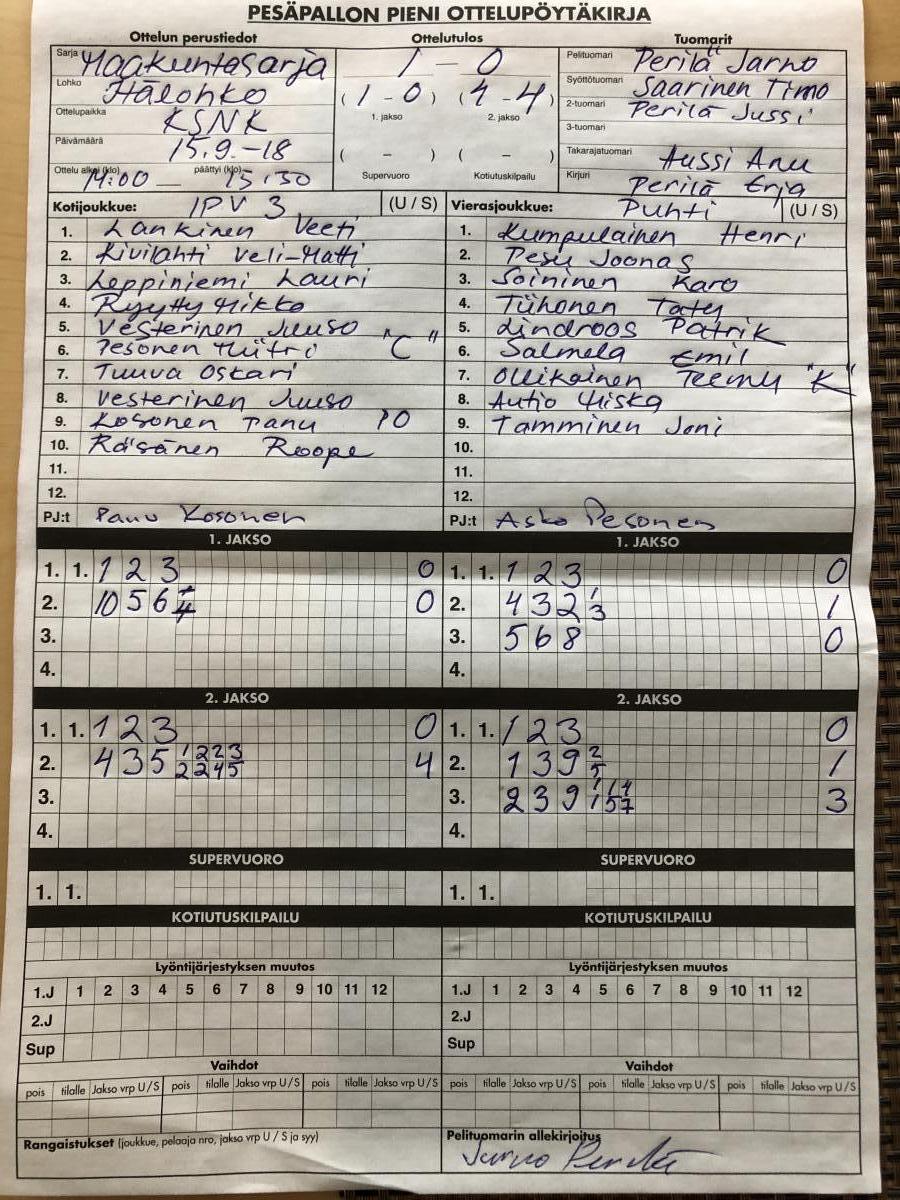 PESÄPALLON PIENI OTTELUPÖYTÄKIRJA
Ottelun perustiedot Ottelutulos Tuomarit
Sarja Maakuntasarja 1 - 0 Pelituomari Perilä Jarno
Lohko Hälohko (1 - 0) (4 - 4) Syöttötuomari Saarinen Timo
1. jakso 2. jakso 2-tuomari Perilä Jussi
Ottelupaikka KSNK 3-tuomari
Päivämäärä 15.9.-18 ( - ) ( - ) Takarajatuomari Aussi Anu
Ottelu alkoi (klo) 14:00 — päättyi (klo) 15:30 Supervuoro Kotiutuskilpailu Kirjuri Perilä Erja
Kotijoukkue: IPV 3 (U / S) Vierasjoukkue: Puhti (U / S)
1. Lankinen Veeti 1. Kumpulainen Henri
2. Kivilahti Veli-Matti 2. Pesu Joonas
3. Leppiniemi Lauri 3. Soininen Karo
4. Ryytty Mikko 4. Tiihonen Tatu
5. Vesterinen Juuso 5. Lindroos Patrik
6. Pesonen Miitri "C" 6. Salmela Emil
7. Tuuva Oskari 7. Ollikainen Teemu "K"
8. Vesterinen Juuso 8. Autio Miska
9. Kosonen Panu PO 9. Tamminen Joni
10. Räsänen Roope 10.
11. 11.
12. 12.
PJ:t Panu Kosonen PJ:t Asko Pesonen
1. JAKSO 1. JAKSO
1. 1. 1 2 3 0 1. 1. 1 2 3 0
2. 10 5 6 0 2. 4 3 2 1 3 1
3. 3. 5 6 8 0
4. 4.
2. JAKSO 2. JAKSO
1. 1. 1 2 3 0 1. 1. 1 2 3 0
2. 4 3 5 1 2 2 3 2 2 4 5 4 2. 1 3 9 2 5 1
3. 3. 2 3 9 1 1 4 1 5 7 3
4. 4.
SUPERVUORO SUPERVUORO
1. 1. 1. 1.
KOTIUTUSKILPAILU KOTIUTUSKILPAILU
Lyöntijärjestyksen muutos Lyöntijärjestyksen muutos
1.J 1 2 3 4 5 6 7 8 9 10 11 12 1.J 1 2 3 4 5 6 7 8 9 10 11 12
2.J 2.J
Sup Sup
Vaihdot Vaihdot
pois tilalle Jakso vrp U / S pois tilalle Jakso vrp U / S pois tilalle Jakso vrp U / S pois tilalle Jakso vrp U / S pois tilalle Jakso vrp U / S pois tilalle Jakso vrp U / S
Rangaistukset (joukkue, pelaaja nro, jakso vrp U / S ja syy) Pelituomarin allekirjoitus
Jarno Perilä